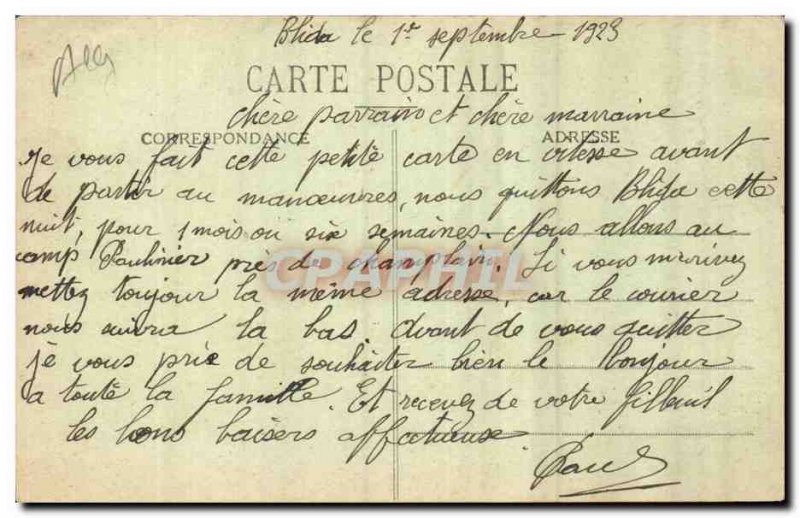 Alg
Blida le 1er septembre 1923
CARTE POSTALE
chère parrain et chère marraine
CORRESPONDANCE ADRESSE
Je vous fait cette petite carte en vitesse avant
de partir au manœuvres, nous quittons Blida cette
nuit, pour 1 mois ou six semaines. Nous allons au
camp Paulinier près de champlain. Si vous m'ecrivez
mettez toujour la même adresse, car le courier
nous suivra la bas. Avant de vous quitter
je vous prie de souhaiter bien le bonjour
a toute la famille. Et recevez de votre filleuil
les bons baisers affectueuse
Paul